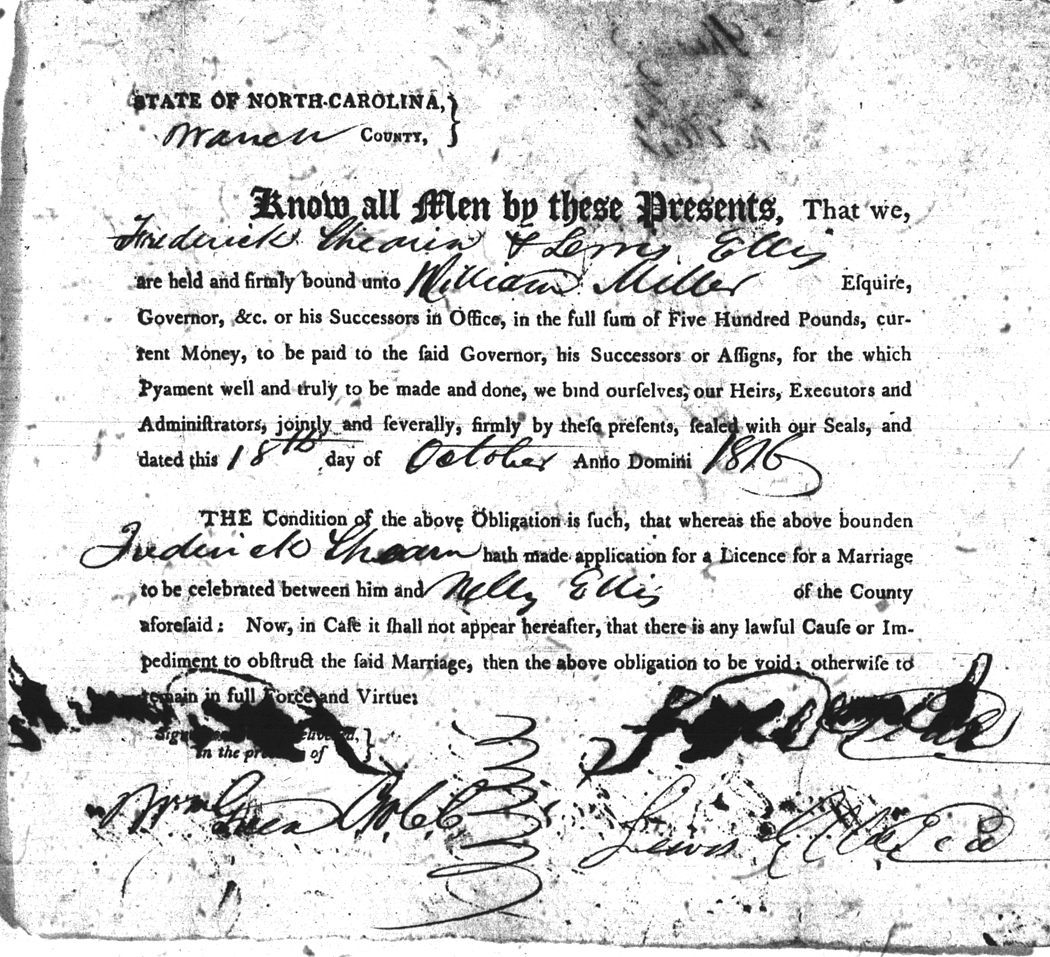 STATE OF NORTH-CAROLINA,
Warren COUNTY,
Know all Men by these Presents, That we,
Frederick Shearin & Lewis Ellis
are held and firmly bound unto William Miller Esquire,
Governor, &c. or his Successors in Office, in the full ſum of Five Hundred Pounds, cur-
rent Money, to be paid to the ſaid Governor, his Successors or Aſſigns, for the which
Pyament well and truly to be made and done, we bind ourſelves, our Heirs, Executors and
Adminiſtrators, jointly and ſeverally, firmly by theſe preſents, ſealed with our Seals, and
dated this 18th day of October Anno Domini 1816
THE Condition of the above Obligation is ſuch, that whereas the above bounden
Frederick Shearin hath made application for a Licence for a Marriage
to be celebrated between him and Nelly Ellis of the County
aforeſaid: Now, in Caſe it ſhall not appear hereafter, that there is any lawful Cauſe or Im-
pediment to obſtruct the ſaid Marriage, then the above obligation to be void; otherwiſe to
remain in full Force and Virtue:
in the of
Lewis Ellis